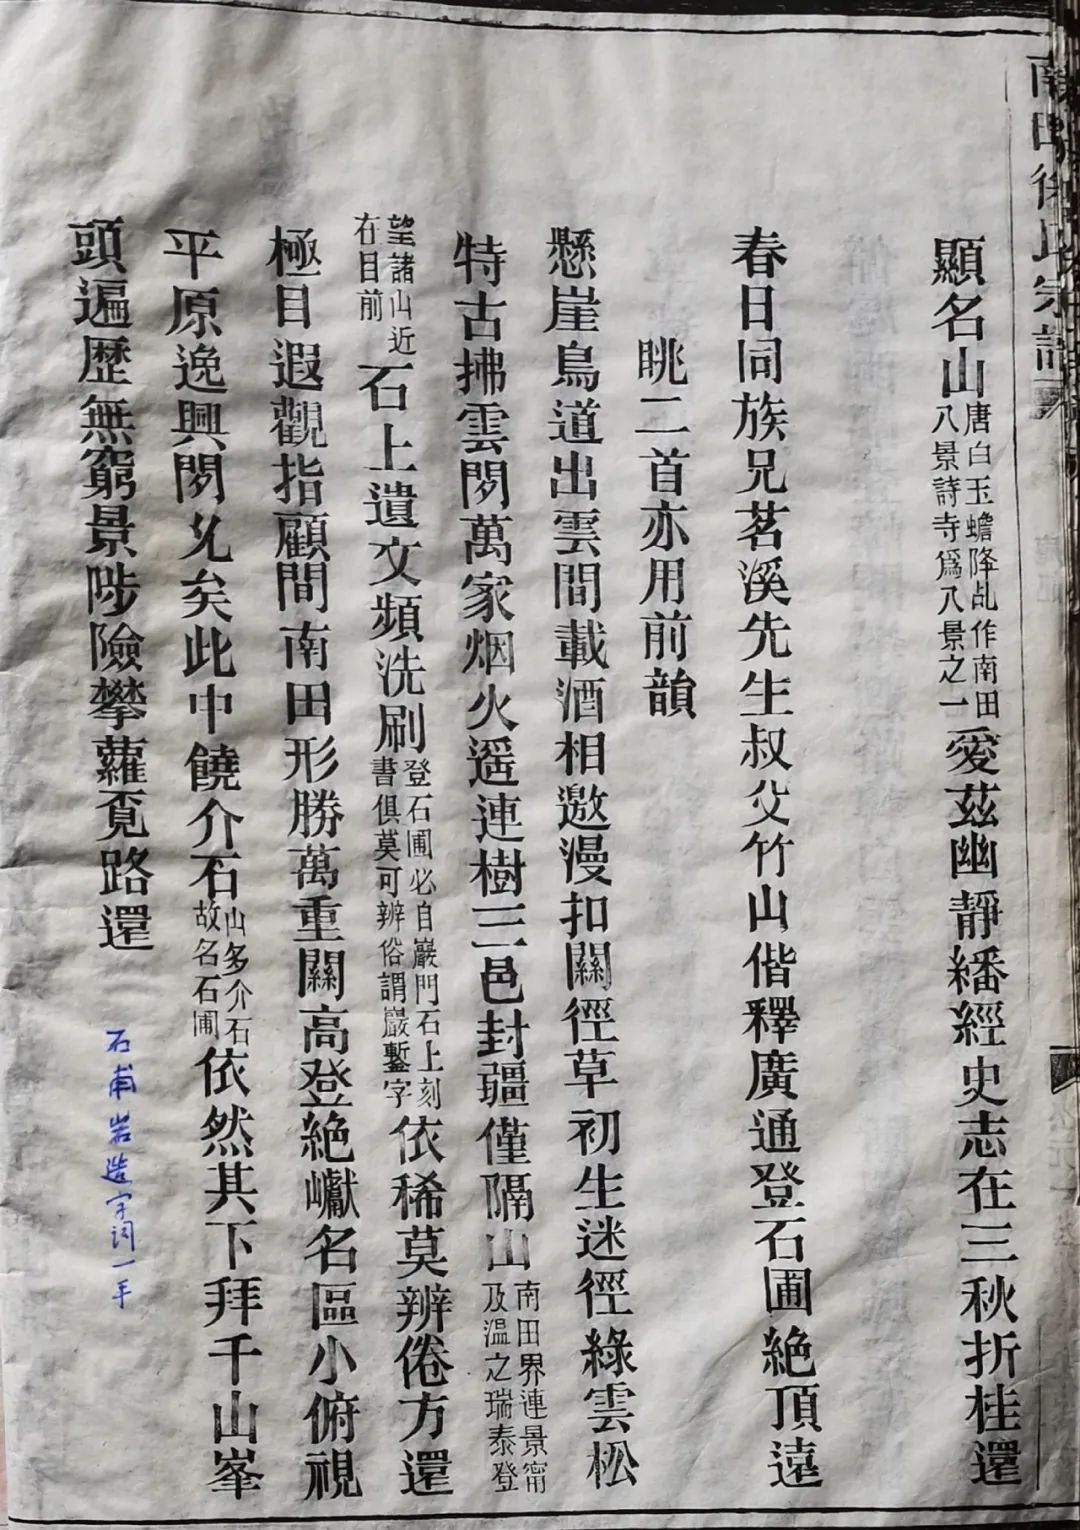 南田徐氏宗譜
顯名山唐白玉蟾降乩作南田八景詩寺爲八景之一愛茲幽靜繙經史志在三秋折桂還
春日同族兄茗溪先生叔父竹山偕釋廣通登石圃絶頂遠
眺二首亦用前韻
懸崖鳥道出雲間載酒相邀漫扣關徑草初生迷徑綠雲松
特古拂雲閒萬家烟火遥連樹三邑封疆僅隔山南田界連景甯及温之瑞泰登
望諸山近在目前石上遺文頻洗刷登石圃必自巖門石上刻書俱莫可辨俗謂巖鏨字依稀莫辨倦方還
極目遐觀指顧間南田形勝萬重關高登絶巘名區小俯視
平原逸興閒允矣此中饒介石山多介石故名石圃依然其下拜千山峯
頭遍歴無窮景陟險攀蘿覔路還
石甫岩造字词一手